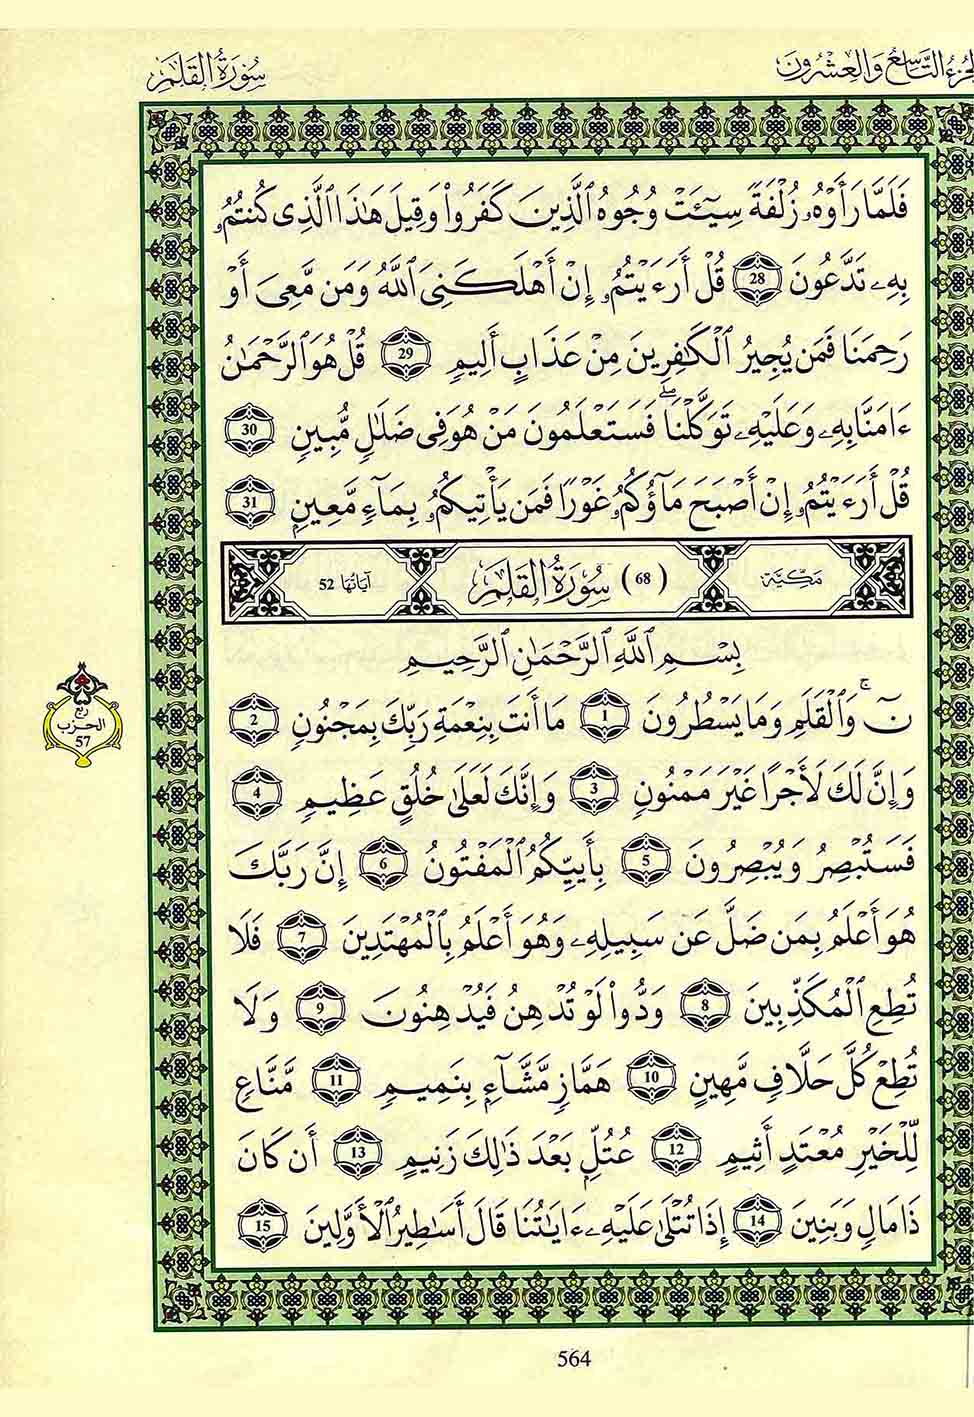 الجزء التاسع والعشرون
سُورَةُ القَلَمِ
فَلَمَّا رَأَوۡهُۥ زُلۡفَةٗ سِيٓـَٔتۡ وُجُوهُ ٱلَّذِينَ كَفَرُواْ وَقِيلَ هَٰذَا ٱلَّذِى كُنتُمُۥ
بِهِۦ تَدَّعُونَ 28 قُلۡ أَرَءَيۡتُمُۥٓ إِنۡ أَهۡلَكَنِىَ ٱللَّهُ وَمَن مَّعِىَ أَوۡ
رَحِمَنَا فَمَن يُجِيرُ ٱلۡكَٰفِرِينَ مِنۡ عَذَابٍ أَلِيمٖ 29 قُلۡ هُوَ ٱلرَّحۡمَٰنُ
ءَامَنَّا بِهِۦ وَعَلَيۡهِۦ تَوَكَّلۡنَاۖ فَسَتَعۡلَمُونَ مَنۡ هُوَ فِى ضَلَٰلٖ مُّبِينٖ 30
قُلۡ أَرَءَيۡتُمُۥٓ إِنۡ أَصۡبَحَ مَآؤُكُمُۥ غَوۡرٗا فَمَن يَأۡتِيكُمُۥ بِمَآءٖ مَّعِينِۭ 31
مَكِّيَّة
(68) سُورَةُ القَلَمِ
آيَاتُهَا 52
بِسۡمِ ٱللَّهِ ٱلرَّحۡمَٰنِ ٱلرَّحِيمِ
نٓۚ وَٱلۡقَلَمِ وَمَا يَسۡطُرُونَ 1 مَا أَنتَ بِنِعۡمَةِ رَبِّكَ بِمَجۡنُونٖ 2
ربع
الحزب
57
وَإِنَّ لَكَ لَأَجۡرًا غَيۡرَ مَمۡنُونٖ 3 وَإِنَّكَ لَعَلَىٰ خُلُقٍ عَظِيمٖ 4
فَسَتُبۡصِرُ وَيُبۡصِرُونَ 5 بِأَييِّكُمُ ٱلۡمَفۡتُونُ 6 إِنَّ رَبَّكَ
هُوَ أَعۡلَمُ بِمَن ضَلَّ عَن سَبِيلِهِۦ وَهُوَ أَعۡلَمُ بِٱلۡمُهۡتَدِينَ 7 فَلَا
تُطِعِ ٱلۡمُكَذِّبِينَ 8 وَدُّواْ لَوۡ تُدۡهِنُ فَيُدۡهِنُونَ 9 وَلَا
تُطِعۡ كُلَّ حَلَّافٖ مَّهِينٍ 10 هَمَّازٖ مَّشَّآءِۭ بِنَمِيمٖ 11 مَّنَّاعٖ
لِّلۡخَيۡرِ مُعۡتَدٍ أَثِيمٍ 12 عُتُلِّۭ بَعۡدَ ذَٰلِكَ زَنِيمٍ 13 أَن كَانَ
ذَا مَالٖ وَبَنِينَ 14 إِذَا تُتۡلَىٰ عَلَيۡهِۦ ءَايَٰتُنَا قَالَ أَسَٰطِيرُ ٱلۡأَوَّلِينَ 15
564